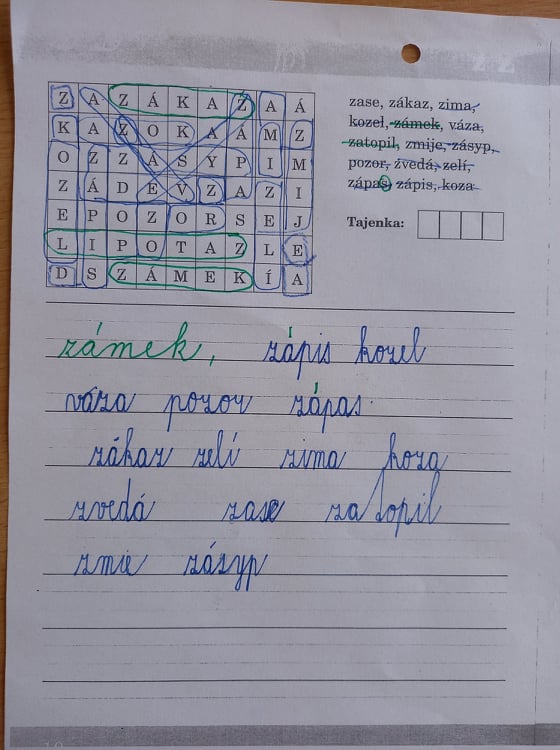 Z A Z Á K A Z A Á
K A Z O K A Á M Z
O Z Z Á S Y P I M
Z Á D E V Z A Z I
E P O Z O R S E J
L I P O T A Z L E
D S Z Á M E K Í A
zase, zákaz, zima,
kozel, zámek, váza,
zatopil, zmije, zásyp,
pozor, zvedá, zelí,
zápas, zápis, koza
Tajenka:
zámek, zápis kozel
váza pozor zápas
zákaz zelí zima koza
zvedá zase zatopil
zmie zásyp